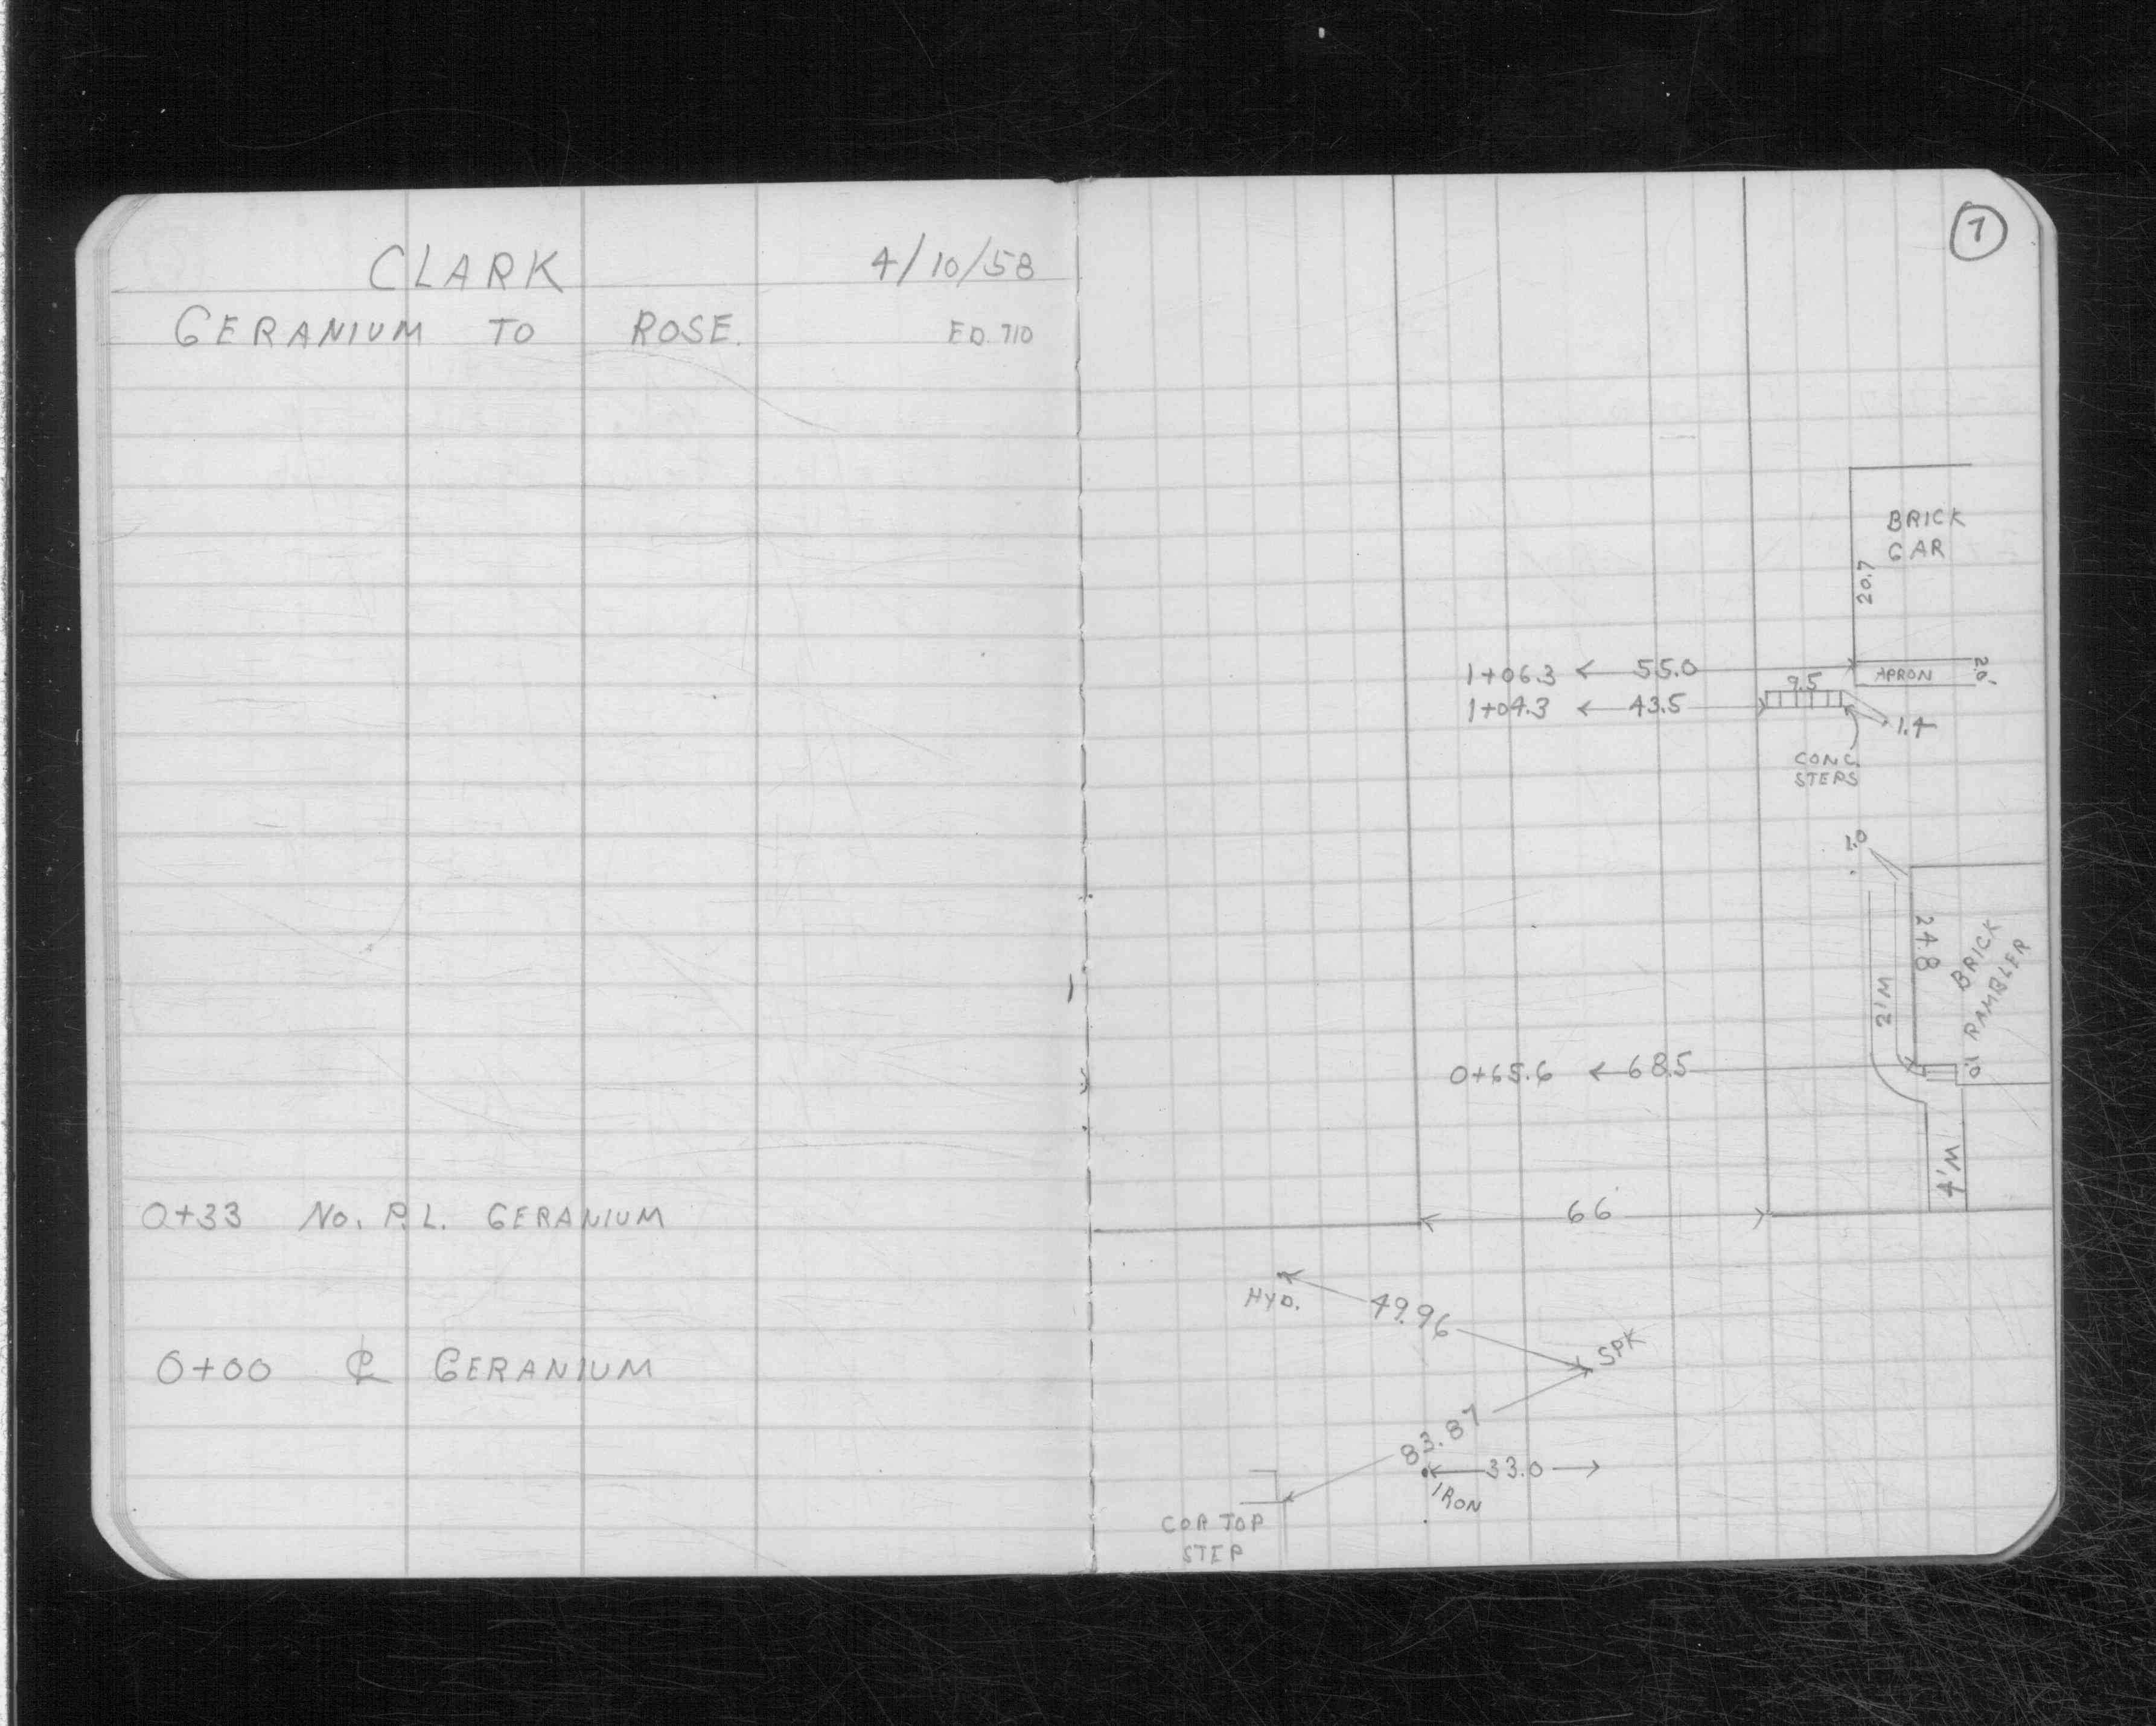 CLARK 4/10/58
GERANIUM TO ROSE. ED. 710
0+33 No. P.L. GERANIUM
0+00 ℄ GERANIUM
1
BRICK
GAR
20.7
1+06.3 55.0
APRON 2.0
9.5
1+04.3 43.5
1.4
CONC.
STEPS
1.0
24.8
BRICK
RAMBLER
2'M
0+65.6 68.5
1.0
4'W
66
HYD.
49.96
SPK
83.87
33.0
IRON
COR TOP
STEP